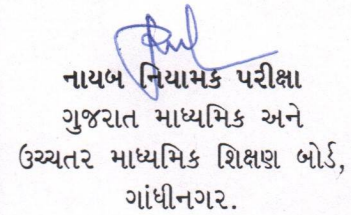 નાયબ નિયામક પરીક્ષા
ગુજરાત માધ્યમિક અને
ઉચ્ચતર માધ્યમિક શિક્ષણ બોર્ડ,
ગાંધીનગર.